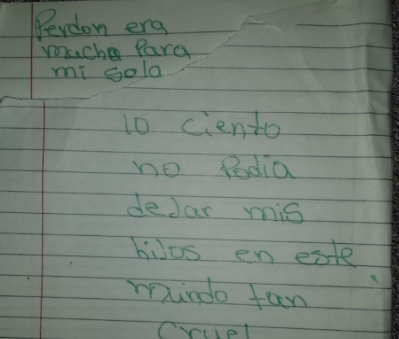 Perdon era
mucho Para
mi sola
lo ciento
no Podia
dejar mis
hijos en este
mundo tan
cruel